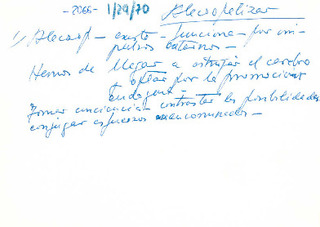 -2066- 1/29/70 Alecopelizar
1) Alecop - existe - funciona - por im-
pulsos externos -
Hemos de llegar a estrujar el cerebro
operar por la promocion
Tomar conciencia - contrastar las posibilidades
conjugar esfuerzos mancomunados -